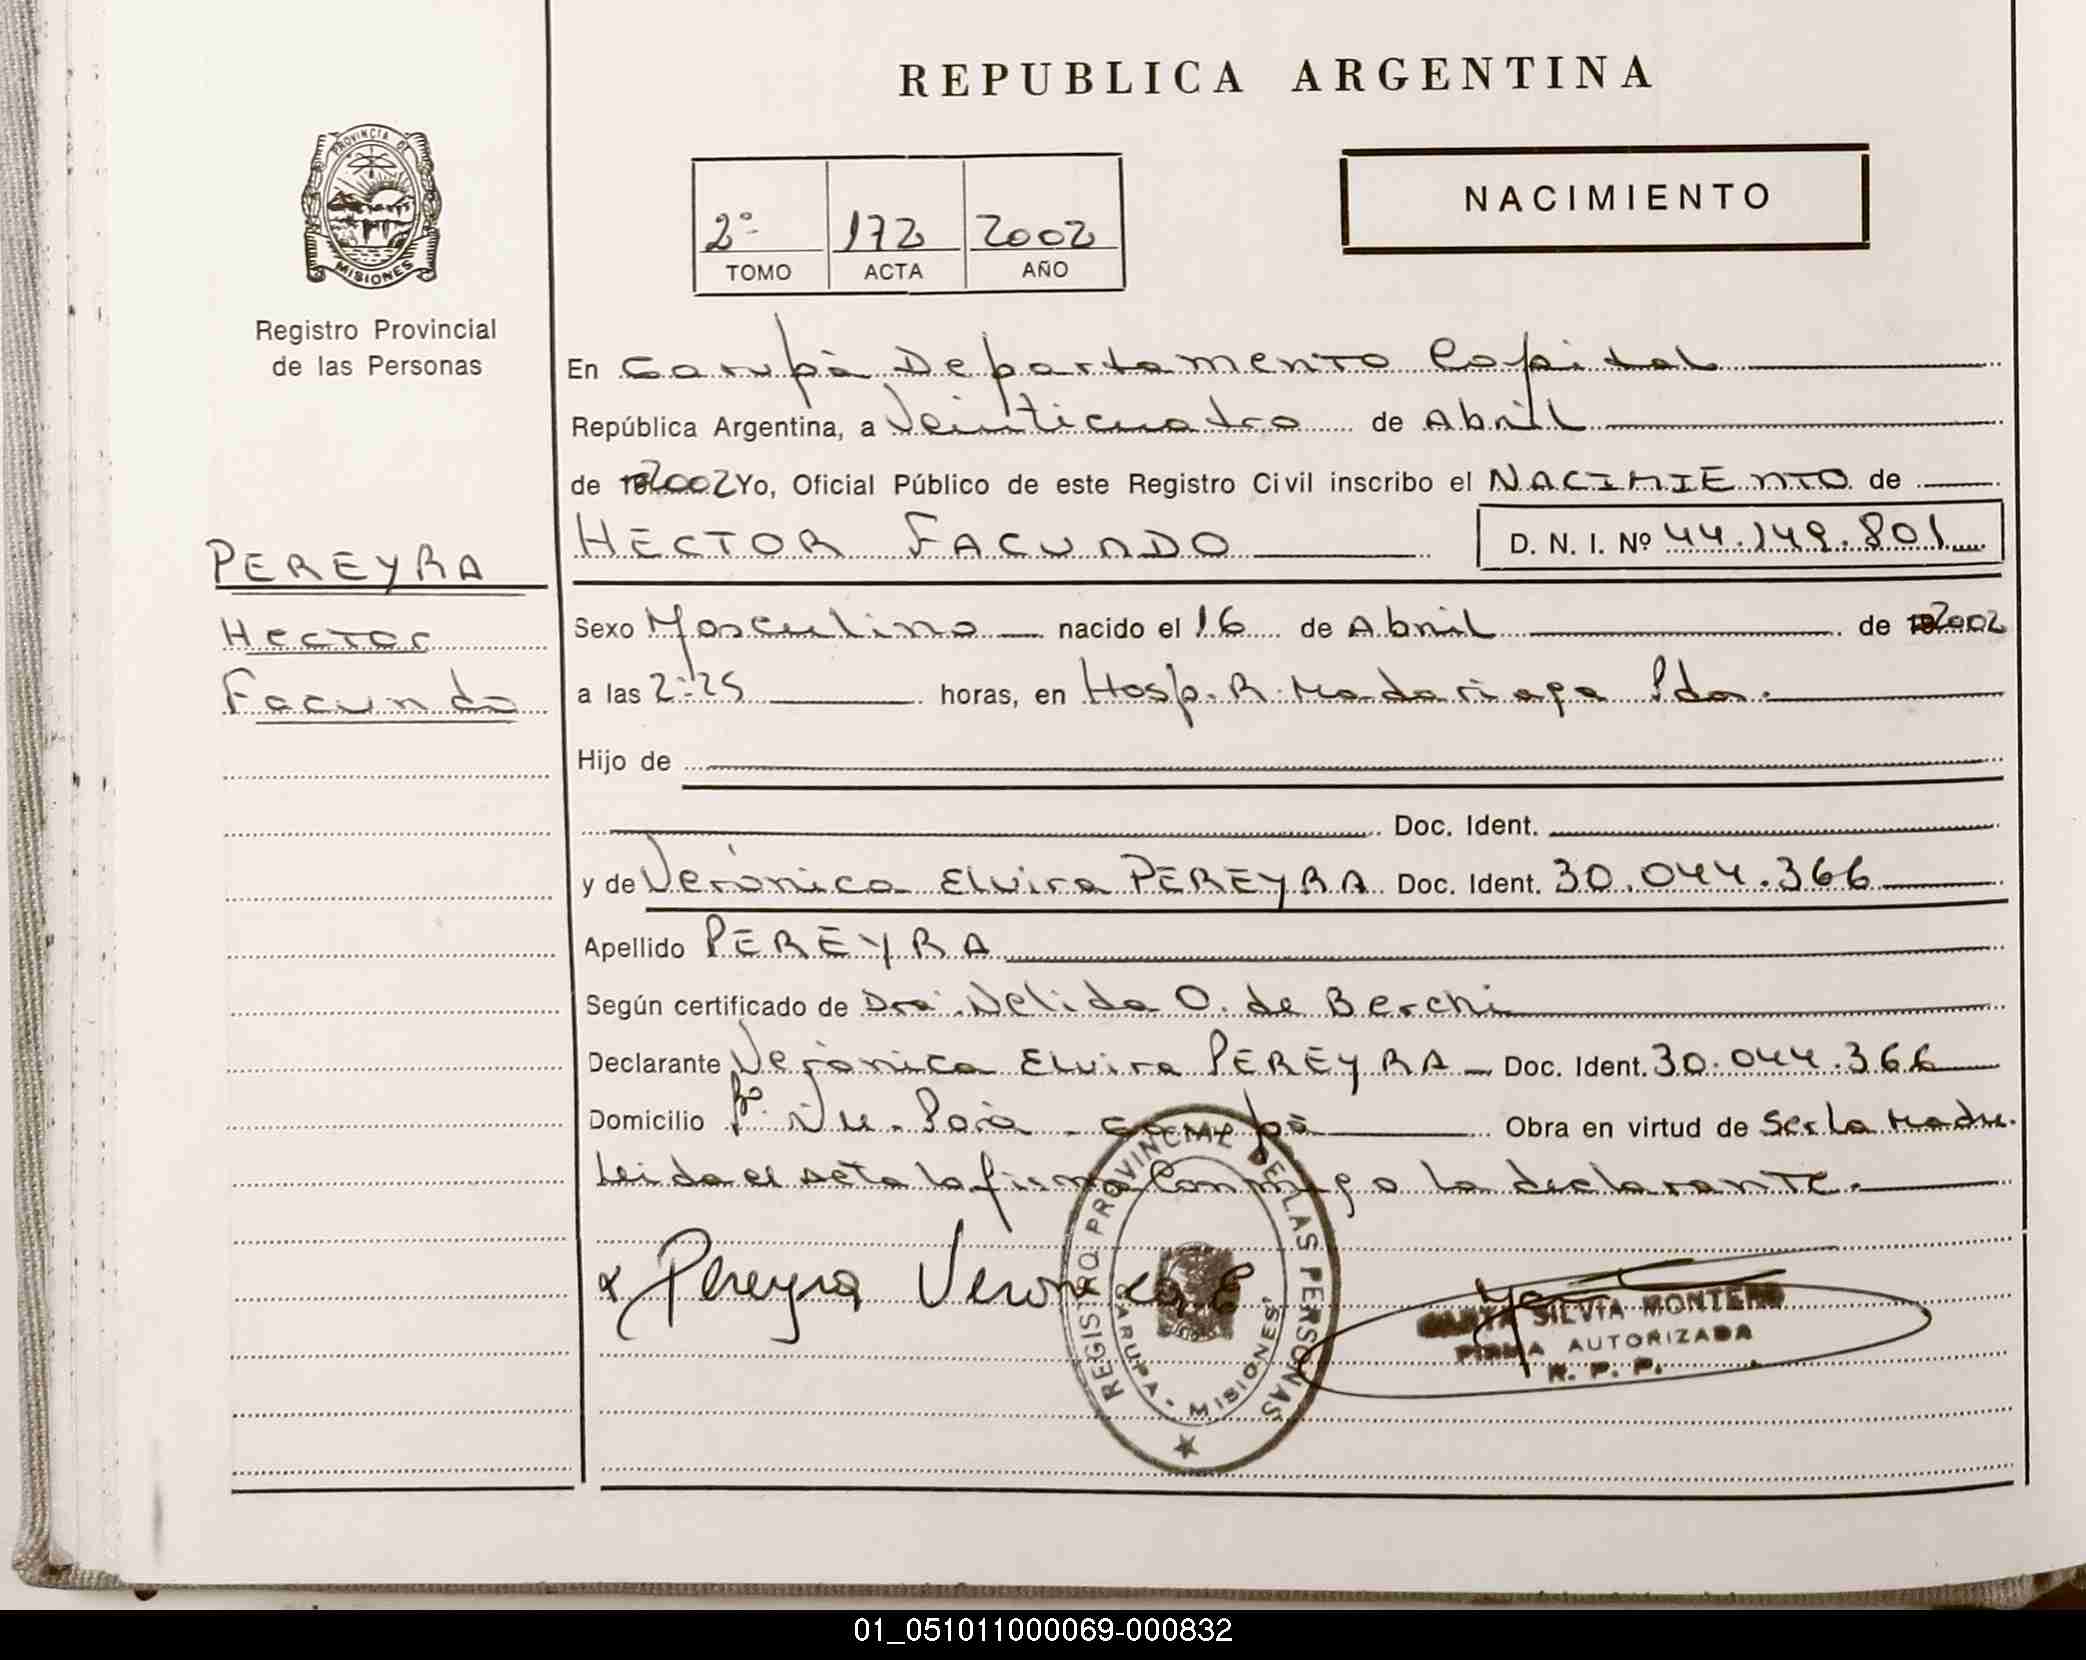 REPUBLICA ARGENTINA
PROVINCIA DE
MISIONES
Registro Provincial
de las Personas
NACIMIENTO
2º 172 2002
TOMO ACTA AÑO
En Garupá Departamento Capital
República Argentina, a Veinticuatro de Abril
de 2002 Yo, Oficial Público de este Registro Civil inscribo el NACIMIENTO de
HECTOR FACUNDO D. N. I. Nº 44.149.801
PEREYRA
Hector
Facundo
Sexo Masculino nacido el 16 de Abril de 2002
a las 2:25 horas, en Hosp. R. Madariaga Pdas.
Hijo de
Doc. Ident.
y de Verónica Elvira PEREYRA Doc. Ident. 30.044.366
Apellido PEREYRA
Según certificado de Dra. Nelida O. de Berchi
Declarante Verónica Elvira PEREYRA Doc. Ident. 30.044.366
Domicilio Bº Ñu-Porá - Garupá Obra en virtud de Ser la Madre.
Leida el acta la firma Conmigo la declarante.
x Pereyra Veronica E
REGISTRO PROVINCIAL DE LAS PERSONAS
GARUPA - MISIONES
SILVIA MONTERO
FIRMA AUTORIZADA
R. P. P.
01_051011000069-000832